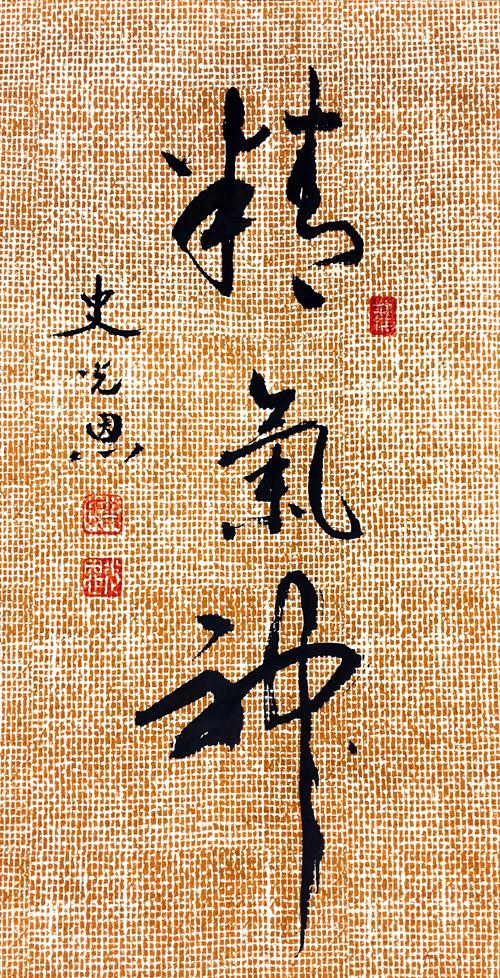 精氣神
史光恩